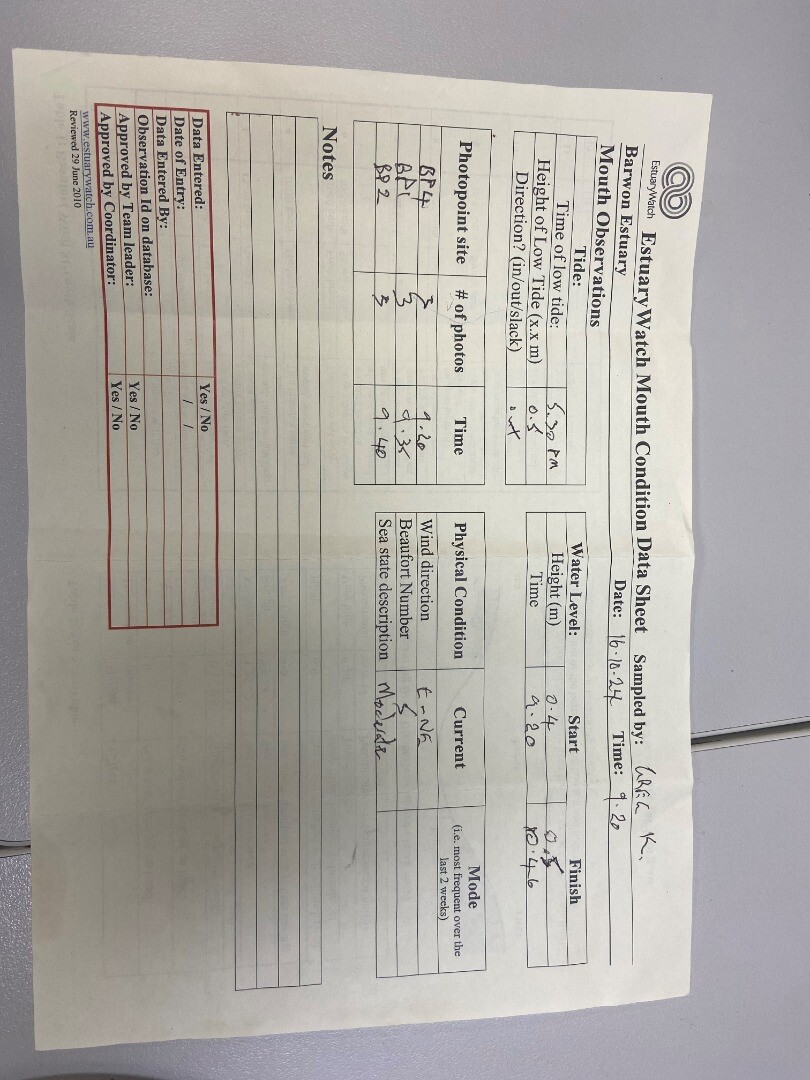 EstuaryWatch
EstuaryWatch Mouth Condition Data Sheet Sampled by: GREG K.
Barwon Estuary Date: 16.10.24 Time: 9.20
Mouth Observations
Tide:
Time of low tide: 5.30 PM
Height of Low Tide (x.x m) 0.5
Direction? (in/out/slack) out
Water Level: Start Finish
Height (m) 0.4
Time 9.20 10.46
Photopoint site # of photos Time
BP4 3 9.20
BP1 3 9.35
BP2 3 9.40
Physical Condition Current Mode
(i.e. most frequent over the
last 2 weeks)
Wind direction E-NE
Beaufort Number
Sea state description Moderate
Notes
Data Entered: Yes / No
Date of Entry: / /
Data Entered By:
Observation Id on database:
Approved by Team leader: Yes / No
Approved by Coordinator: Yes / No
www.estuarywatch.com.au
Reviewed 29 June 2010